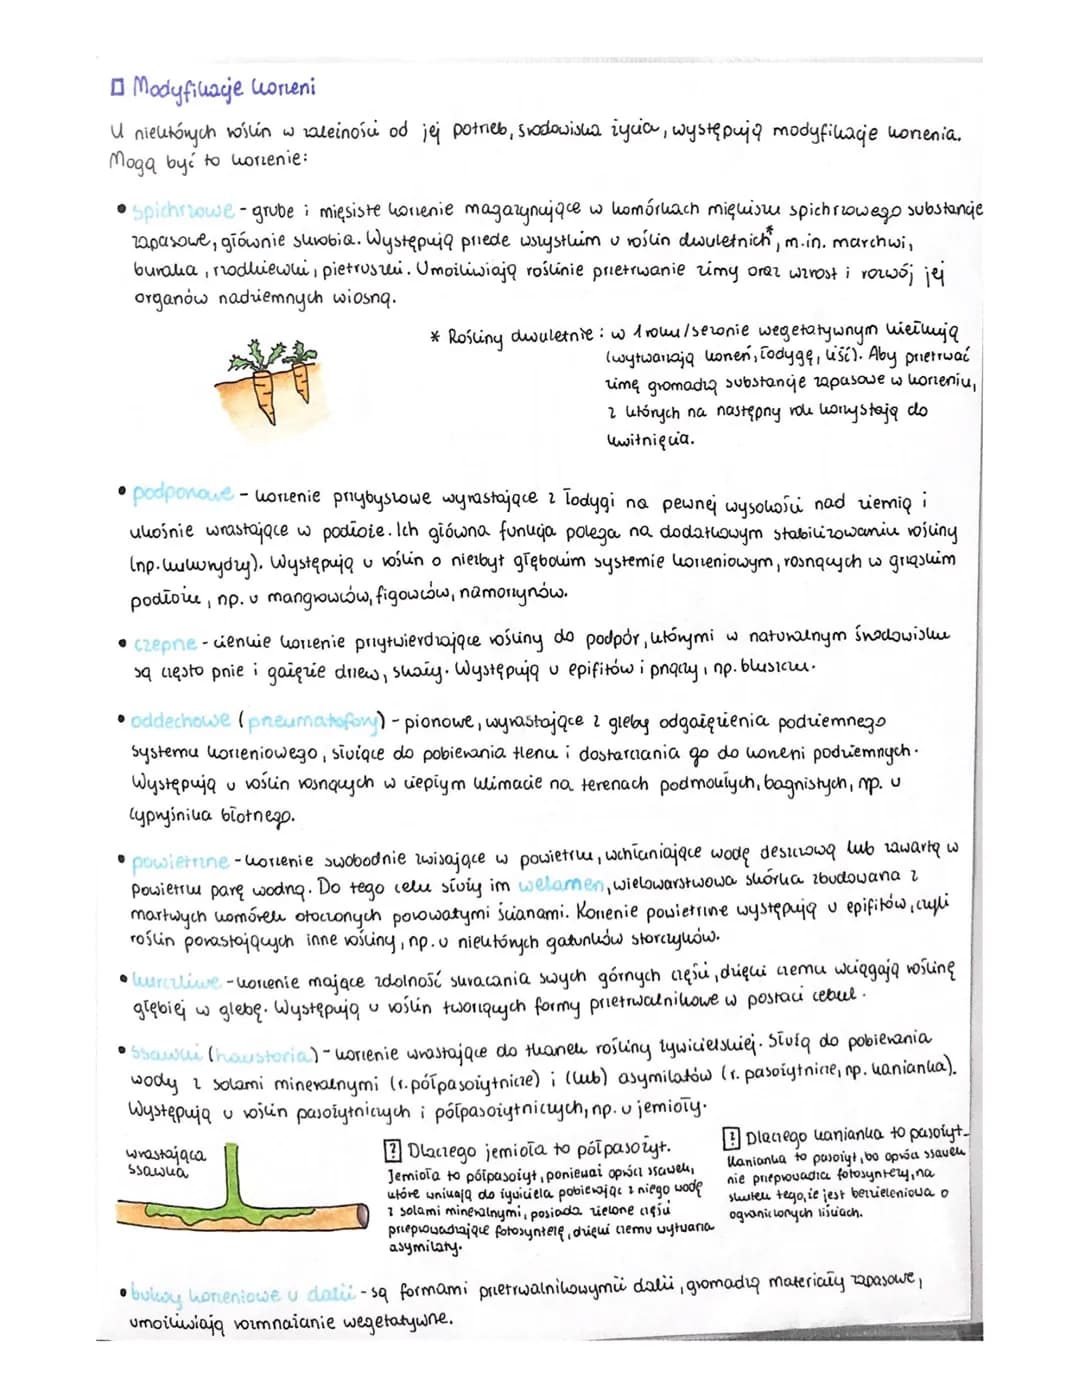 Modyfikacje korzeni
U niektórych roślin w zależności od jej potrzeb, środowiska życia, występują modyfikacje korzenia.
Mogą być to korzenie:
• spichrzowe - grube i mięsiste korzenie magazynujące w komórkach miękiszu spichrzowego substancje
zapasowe, głównie skrobia. Występują przede wszystkim u roślin dwuletnich*, m.in. marchwi,
buraka, rzodkiewki, pietruszki. Umożliwiają roślinie przetrwanie zimy oraz wzrost i rozwój jej
organów nadziemnych wiosną.
* Rośliny dwuletnie: w 1 roku/sezonie wegetatywnym kiełkują
(wytwarzają korzeń, łodygę, liść). Aby przetrwać
zimę gromadzą substancje zapasowe w korzeniu,
z których na następny rok korzystają do
kwitnięcia.
• podporowe - korzenie przybyszowe wyrastające z łodygi na pewnej wysokości nad ziemią i
ukośnie wrastające w podłoże. Ich główna funkcja polega na dodatkowym stabilizowaniu rośliny
(np. kukurydzy). Występują u roślin o niezbyt głębokim systemie korzeniowym, rosnących w grząskim
podłożu, np. u mangrowców, figowców, namorzynów.
• czepne - cienkie korzenie przytwierdzające rośliny do podpór, którymi w naturalnym środowisku
są często pnie i gałęzie drzew, skały. Występują u epifitów i pnączy, np. bluszczu.
• oddechowe (pneumatofory) - pionowe, wyrastające z gleby odgałęzienia podziemnego
systemu korzeniowego, służące do pobierania tlenu i dostarczania go do korzeni podziemnych.
Występują u roślin rosnących w ciepłym klimacie na terenach podmokłych, bagnistych, np. u
cypryśnika błotnego.
• powietrzne - korzenie swobodnie zwisające w powietrzu, wchłaniające wodę deszczową lub zawartą w
powietrzu parę wodną. Do tego celu służy im welamen, wielowarstwowa skórka zbudowana z
martwych komórek otoczonych porowatymi ścianami. Korzenie powietrzne występują u epifitów, czyli
roślin porastających inne rośliny, np. u niektórych gatunków storczyków.
• kurczliwe - korzenie mające zdolność skracania swych górnych części, dzięki czemu wciągają roślinę
głębiej w glebę. Występują u roślin tworzących formy przetrwalnikowe w postaci cebul.
• ssawki (haustoria) - korzenie wrastające do tkanek rośliny żywicielskiej. Służą do pobierania
wody z solami mineralnymi (r. półpasożytnicze) i (lub) asymilatów (r. pasożytnicze, np. kanianka).
Występują u roślin pasożytniczych i półpasożytniczych, np. u jemioły.
wrastająca
ssawka
? Dlaczego jemioła to półpasożyt.
Jemioła to półpasożyt, ponieważ oprócz ssawek,
które wnikają do żywiciela pobierając z niego wodę
z solami mineralnymi, posiada zielone części
przeprowadzające fotosyntezę, dzięki czemu wytwarza
asymilaty.
! Dlaczego kanianka to pasożyt.
Kanianka to pasożyt, bo oprócz ssawek
nie przeprowadza fotosyntezy, na
skutek tego, że jest bezzieleniowa o
ograniczonych liściach.
• bulwy korzeniowe u dalii - są formami przetrwalnikowymi dalii, gromadzą materiały zapasowe,
umożliwiają rozmnażanie wegetatywne.